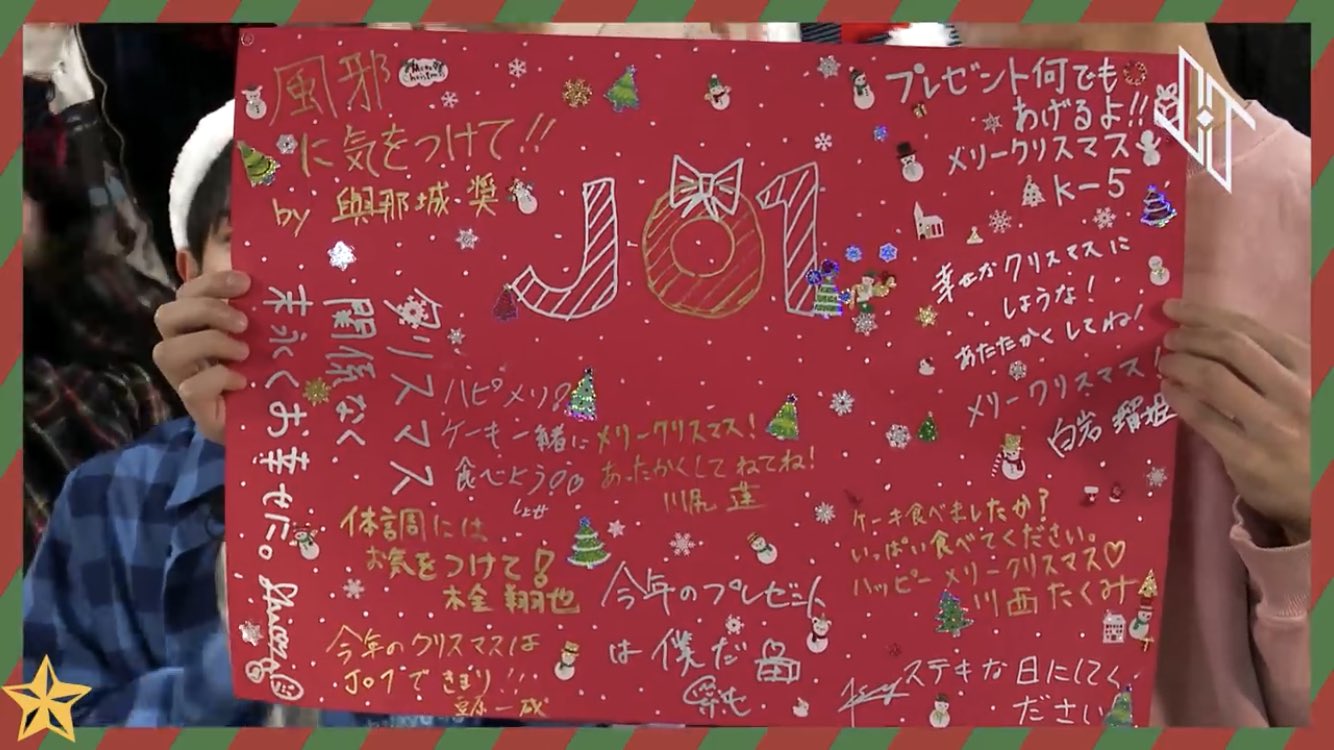 風邪
に気をつけて!!
by 與那城 奨
Merry
Christmas
JO1
プレゼント何でも
わげるよ!!
メリークリスマス
K-5
幸せなクリスマスに
しような!
あたたかくしてね!
メリークリスマス!
白岩 瑠姫
クリスマス
関係なく
末永くお幸せに。
ハピメリ
ケーキ一緒に
食べよう
しょせ
メリークリスマス!
あったかくしてねてね!
川尻 蓮
体調には
お気をつけて!
木全 翔也
ケーキ食べましたか?
いっぱい食べてください。
ハッピーメリークリスマス♡
川西たくみ
今年のプレゼント
は僕だ
今年のクリスマスは
JO1できまり!!
豆原一成
ステキな日にしてく
ださい